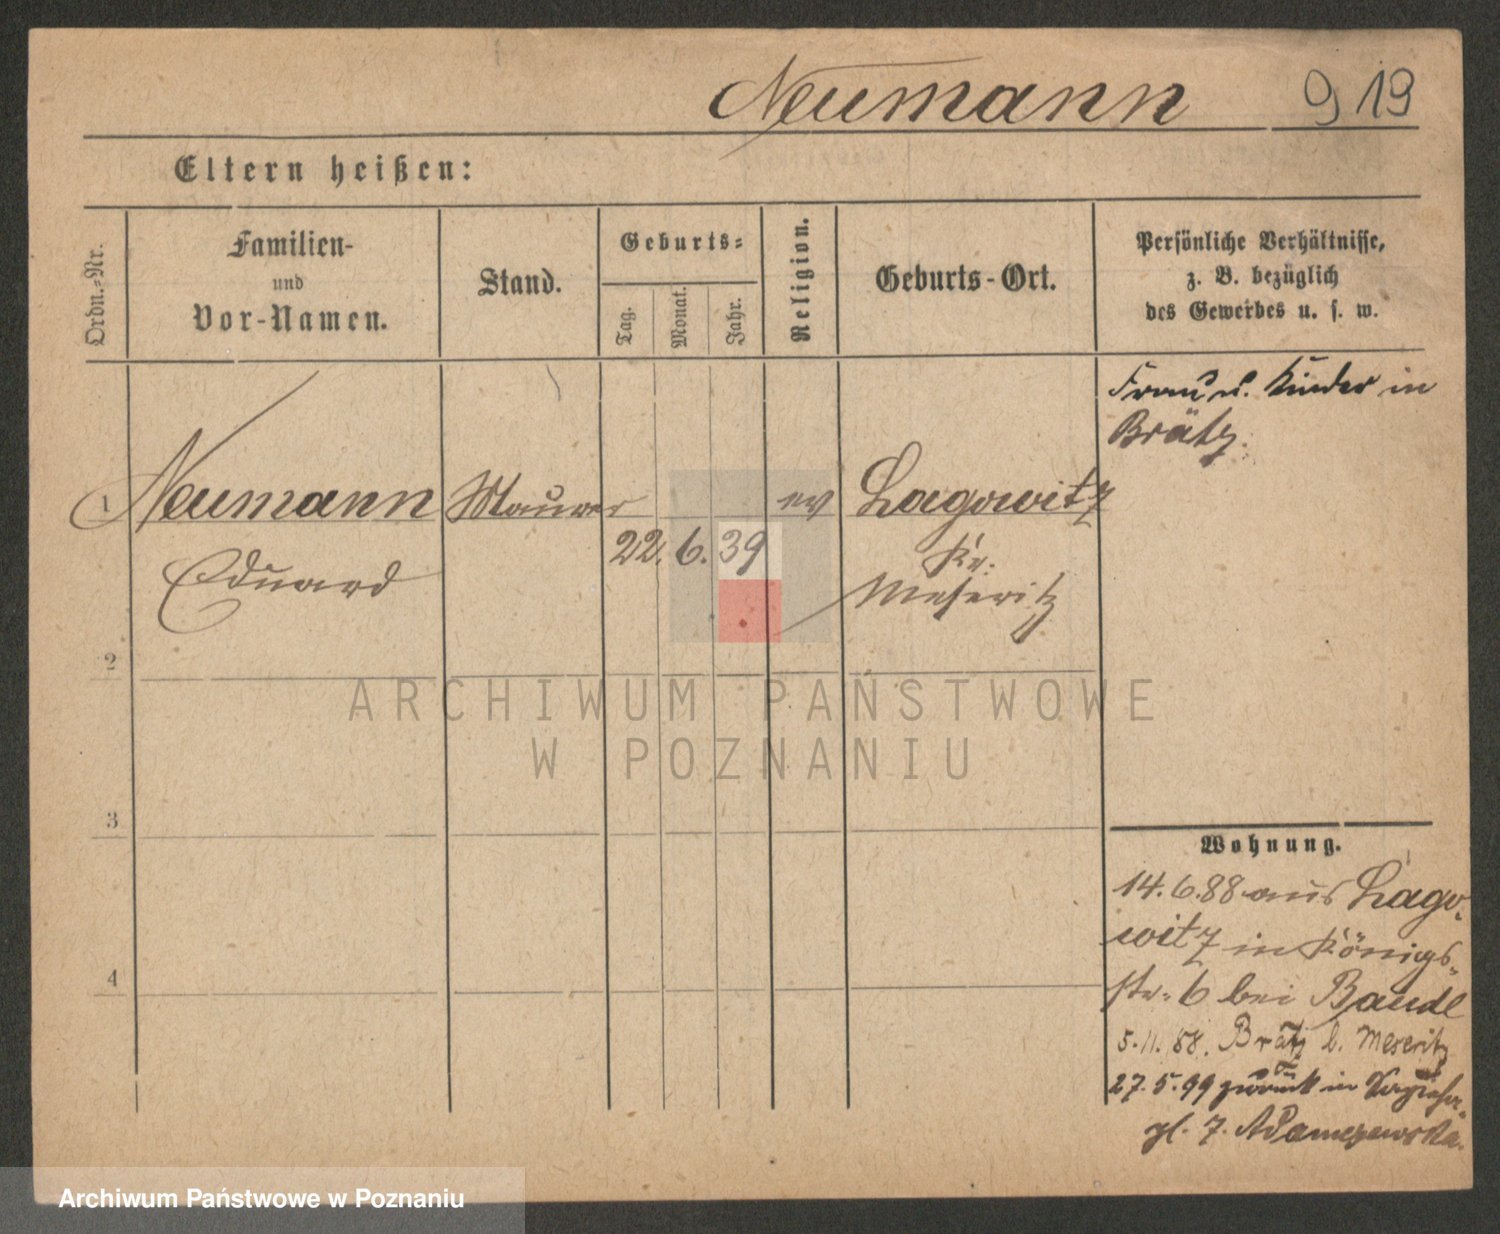 Neumann 919
Eltern heißen:
Ordn.-Nr.
Familien-
und
Vor-Namen.
Stand.
Geburts-
Tag.
Monat.
Jahr.
Religion.
Geburts-Ort.
Persönliche Verhältnisse,
z. B. bezüglich
des Gewerbes u. s. w.
Frau u. Kinder in
Brätz.
1 Neumann Maurer ev Lagowitz
22. 6. 39 Kr.
Eduard Meseritz
2
3
4
ARCHIWUM PAŃSTWOWE
W POZNANIU
Wohnung.
14.6.88 aus Lago-
witz in Königs-
str. 6 bei Baudl
5.11.88. Brätz b. Meseritz
27.5.99 zurück in
gl. 7. Adamczewska.
Archiwum Państwowe w Poznaniu